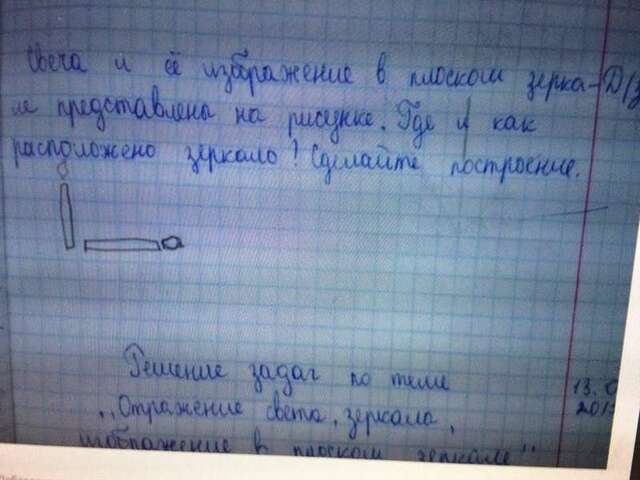 Свеча и её изображение в плоском зерка-
ле представлены на рисунке. Где и как
расположено зеркало? Сделайте построение.
Решение задач по теме
„Отражение света, зеркала,
изображение в плоском зеркале"